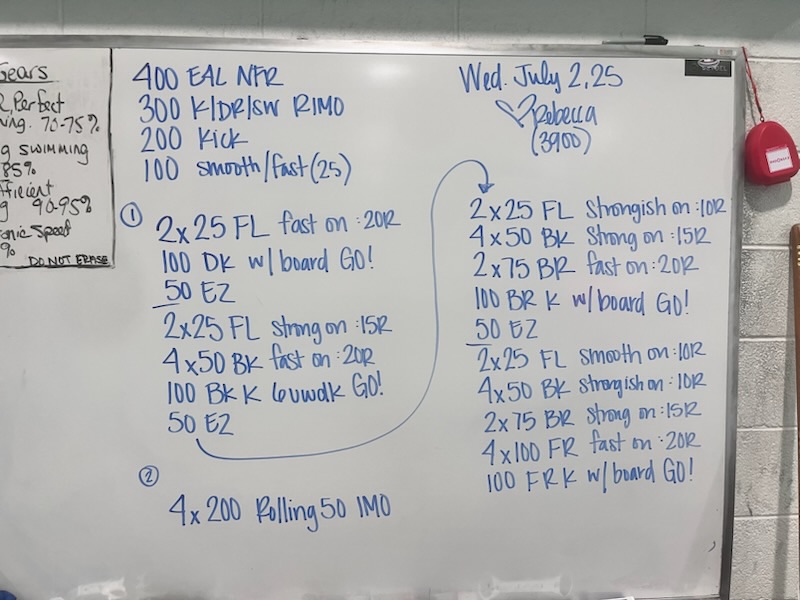 Gears
Perfect
70-75%
g SWIMMING
85%
fficient
g 90-95%
onic Speed
%
DO NOT ERASE
400 EAL NFR
300 K/DR/SW RIMO
200 Kick
100 smooth/fast (25)
Wed. July 2, 25
♡Rebecca
(3900)
①
2x25 FL fast on :20R
100 DK w/board GO!
50 EZ
2x25 FL strong on :15R
4x50 BK fast on :20R
100 BK K 6uwdk GO!
50 EZ
2x25 FL Strongish on :10R
4x50 BK Strong on :15R
2x75 BR fast on :20R
100 BR K w/board GO!
50 EZ
2x25 FL smooth on :10R
4x50 BK strongish on :10R
2x75 BR strong on :15R
4x100 FR fast on :20R
100 FR K w/board GO!
②
4x200 Rolling 50 IMO